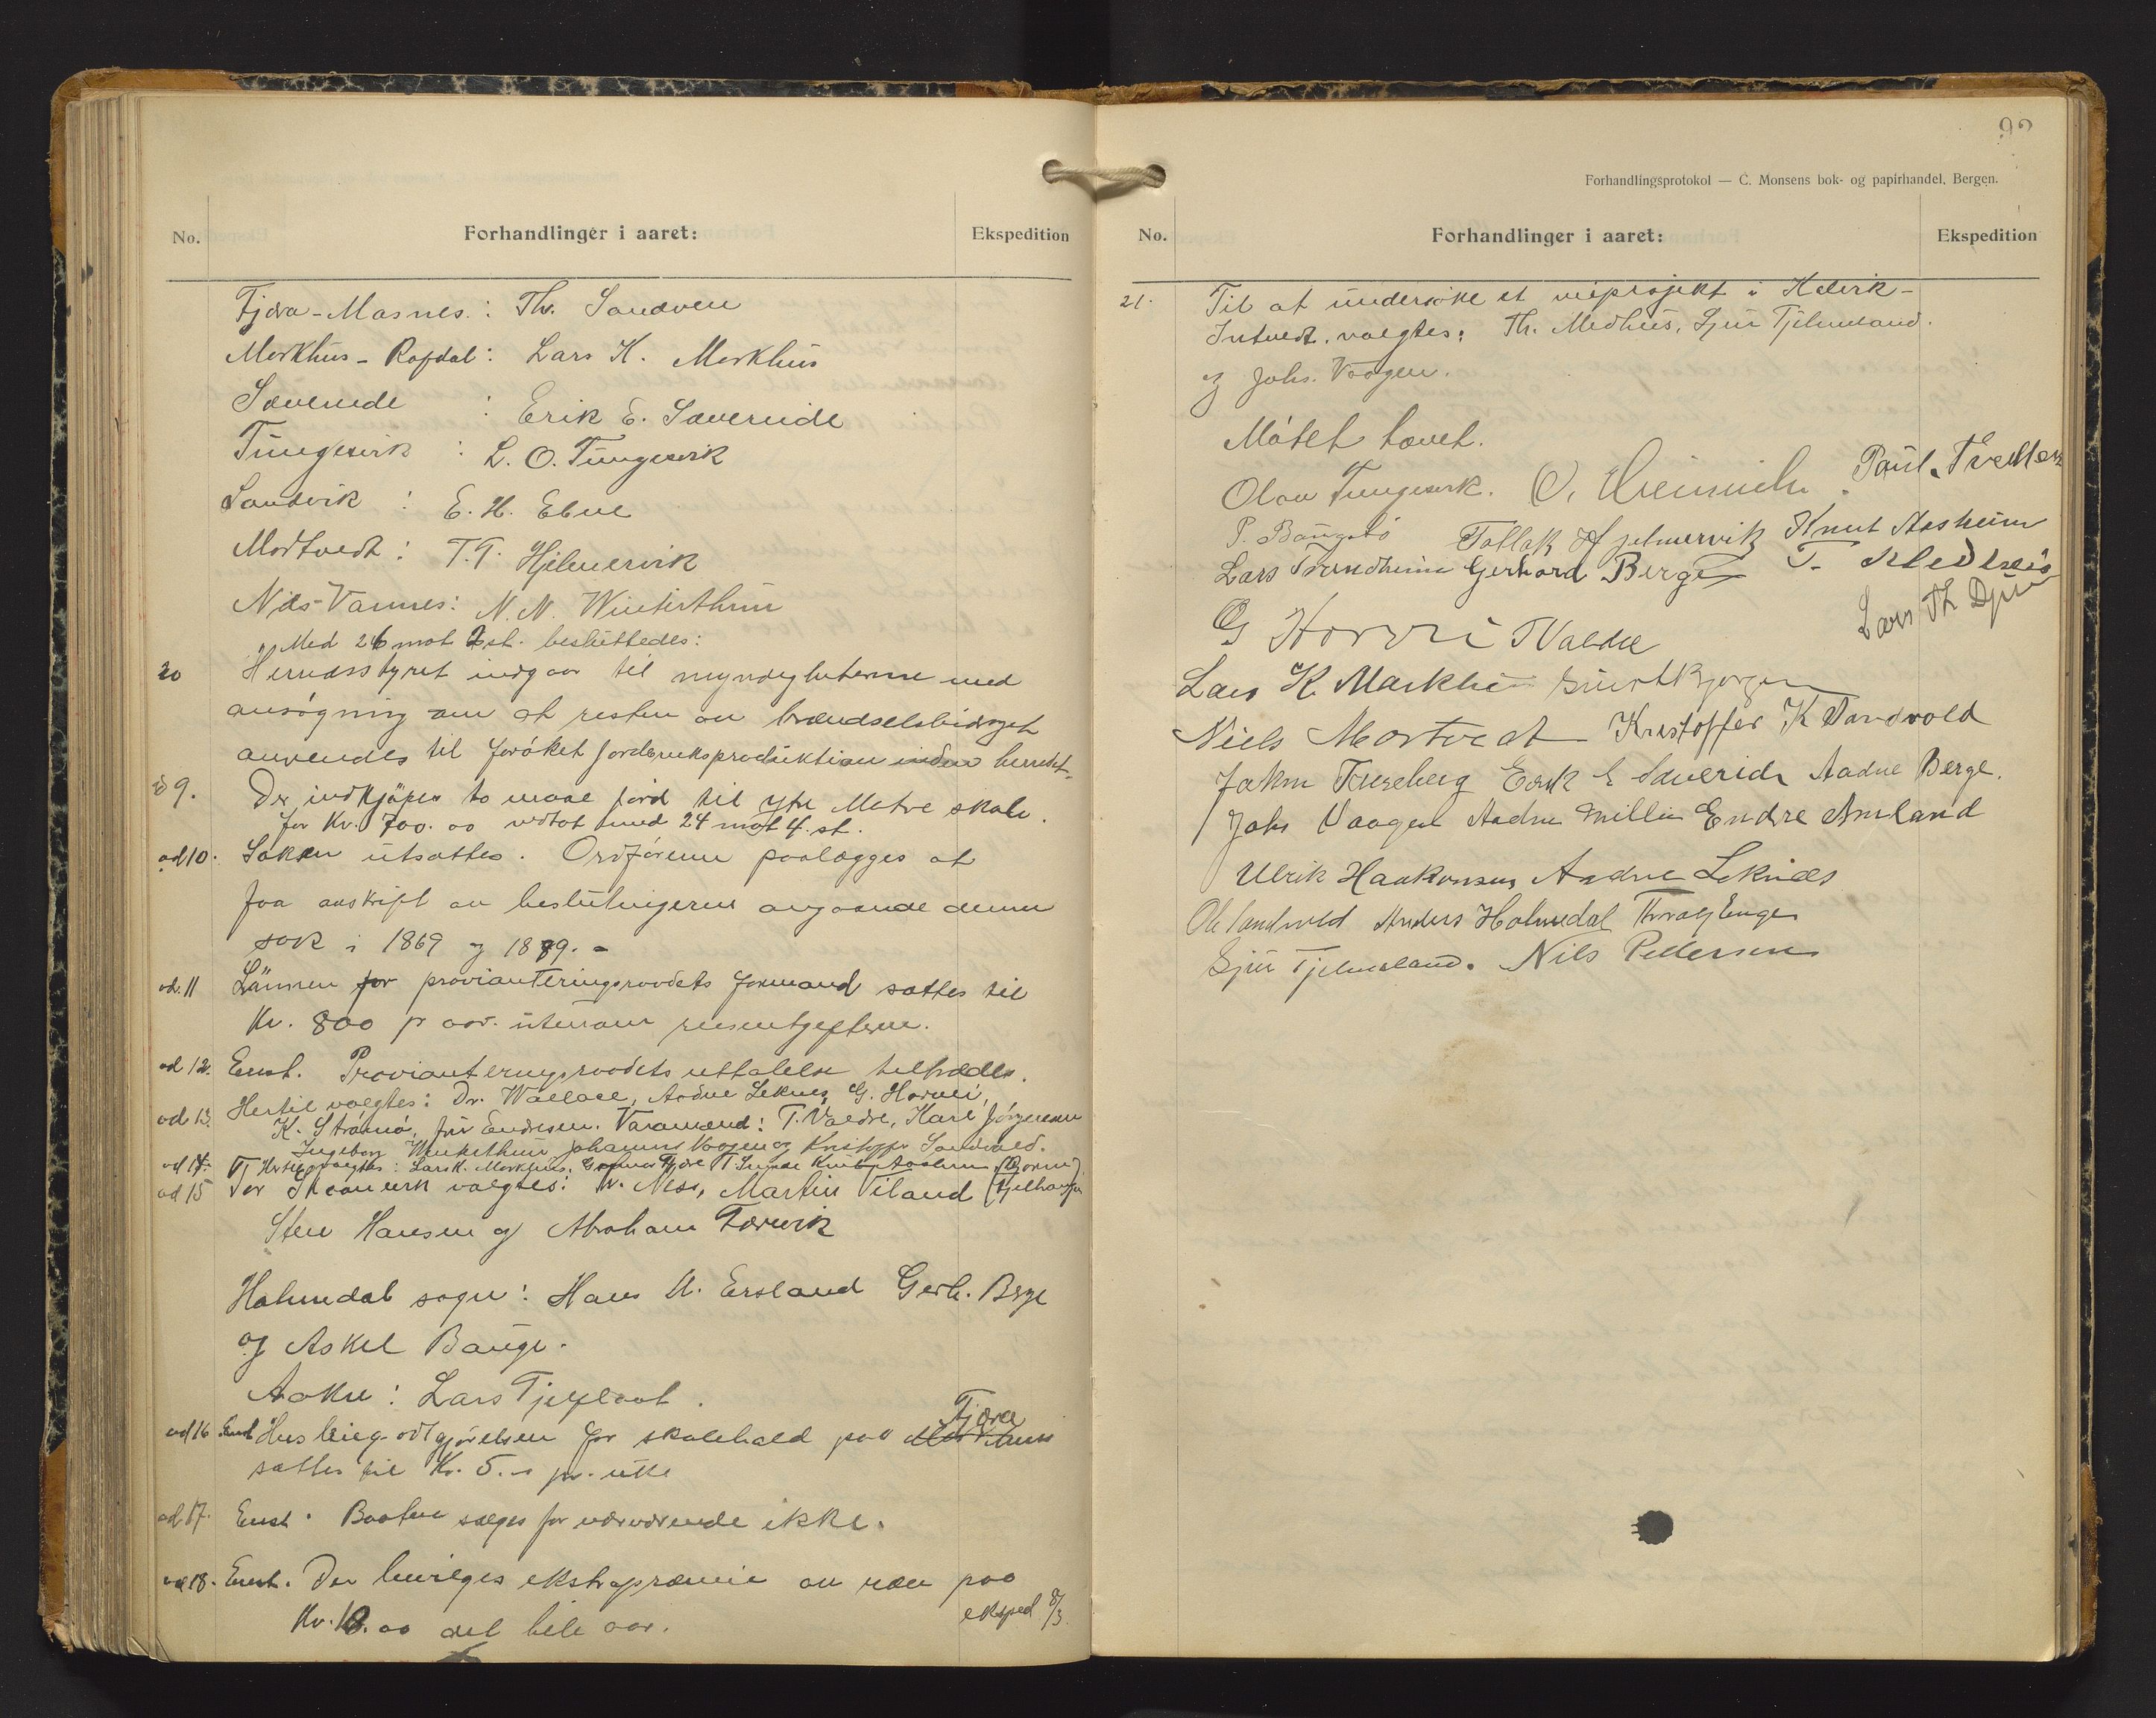 No.
Forhandlinger i aaret:
Ekspedition
Fjæra-Masnes: Th. Sandven
Markhus-Rafdal: Lars K. Markhus
Sæverude : Erik E. Sæverude
Tungesvik : L. O. Tungesvik
Sandvik : E. H. Ebne
Mortvedt: T. T. Hjelmervik
Næs-Vannes: N. N. Vinterthun
Med 26 mot 2 st. besluttedes:
20 Herredsstyret indgaar til myndigheterne med
ansøgning om at resten av brændselsbidraget
anvendes til forøket jordbruksproduktion inden herredet
9. Der indkjøpes to maal jord til ytre Matre skole
for Kr. 700.00 vedtat med 24 mot 4 st.
ad 10. Saken utsattes. Ordføreren paalægges at
faa avskrift av beslutningerne angaaende denne
sak i 1869 og 1889.-
ad. 11 Lønnen for provianteringsraadets formand sattes til
Kr. 800 pr aar. utenom reiseutgifterne.
ad 12. Enst. Provianteringsraadets uttalelse tiltrædes.
ad 13. Hertil valgtes: Dr. Wallace, Aadne Leknes, G. Horvei,
K. Strømø, fru Endresen. Varamænd: T. Valdre, Karl Jørgensen
Ingeborg Vinterthun, Johannes Vaagen og Kristoffer Sandvold.
ad 14. Hertil valgtes: Lars K. Markhus, Fjære T. Knut Aasheim
ad 15 For Skaanevik valgtes: N. Næss, Martin Viland
Sten Hansen og Abraham Tærvik
Holmedal sogn: Hans A. Ersland Gerh. Berge
og Askel Bauge.
Aakre: Lars Tjeflaat.
ad 16 Enst Husleiegodtgjørelsen for skolehald paa Fjæra
sattes til Kr. 5.- pr. uke
ad 17. Enst. Baaten sælges for nærværende ikke.
ad 18. Enst. Der bevilges ekstrapræmie av ræv paa
Kr. 10.00 det hele aar.
eksped 8/3
Forhandlingsprotokol — C. Monsens bok- og papirhandel, Bergen.
No.
Forhandlinger i aaret:
Ekspedition
21. Til at undersøke et veiprosjekt i Halvik-
Intvedt. valgtes: Th. Medhus, Sjur Tjelmeland.
og Johs. Vaagen.
Møtet hævet.
Olav Tungesvik. O. Heinrich. Paul Tvedten
P. Baugstø Tollak Hjelmervik Knut Aasheim
Lars Trondheim Gerhard Berge T. Medhus
G Horvei T Valdre Lars Th Djuv
Lars K. Markhus
Niels Mortvedt Kristoffer K Sandvold
Jakm Tureberg Erik E Sæveride Aadne Berge.
Johs Vaagen Aadne Millie Endre Amland
Ulrik Haakonsen Aadne Leknes
Ole Sandvold Anders Holmedal Thorvald Enge
Sjur Tjelmeland. Nils Pedersen